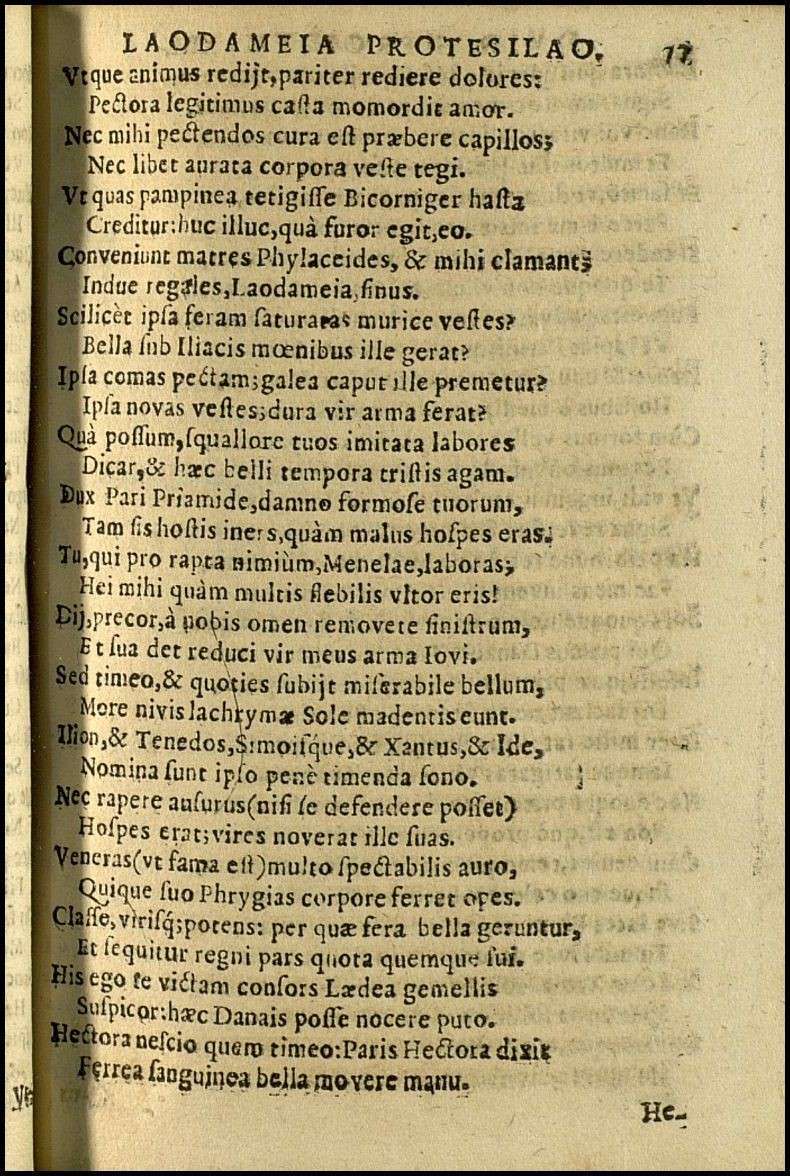 LAODAMEIA PROTESILAO. 77
Vtque animus redijt, pariter rediere dolores:
Pectora legitimus casta momordit amor.
Nec mihi pectendos cura est præbere capillos;
Nec libet aurata corpora veste tegi.
Vt quas pampinea tetigisse Bicorniger hasta
Creditur: huc illuc, quà furor egit, eo.
Conveniunt matres Phylaceides, & mihi clamant;
Indue regales, Laodameia, sinus.
Scilicèt ipsa feram saturatas murice vestes?
Bella sub Iliacis mœnibus ille gerat?
Ipsa comas pectam; galea caput ille premetur?
Ipsa novas vestes; dura vir arma ferat?
Quà possum, squallore tuos imitata labores
Dicar, & hæc belli tempora tristis agam.
Dux Pari Priamide, damno formose tuorum,
Tam sis hostis iners, quàm malus hospes eras.
Tu, qui pro rapta nimiùm, Menelae, laboras;
Hei mihi quàm multis flebilis vltor eris!
Dij, precor, à nobis omen removete sinistrum,
Et sua det reduci vir meus arma Iovi.
Sed timeo, & quoties subijt miserabile bellum,
More nivis lachrymæ Sole madentis eunt.
Ilion, & Tenedos, Simoisq́ue, & Xantus, & Ide,
Nomina sunt ipso penè timenda sono.
Nec rapere ausurus (nisi se defendere posset)
Hospes erat; vires noverat ille suas.
Veneras (vt fama est) multo spectabilis auro,
Quique suo Phrygias corpore ferret opes.
Classe, virisq́; potens: per quæ fera bella geruntur,
Et sequitur regni pars quota quemque sui.
His ego te victam consors Lædea gemellis
Suspicor: hæc Danais posse nocere puto.
Hectora nescio quem timeo: Paris Hectora dixit
Ferrea sanguinea bella movere manu.
He-